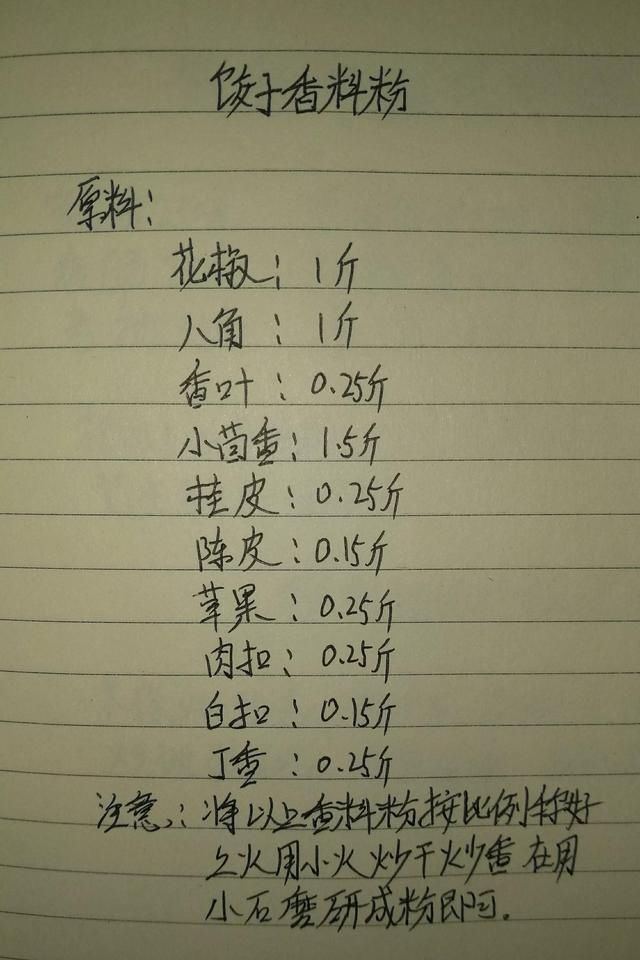 饺子香料粉
原料:
花椒: 1斤
八角: 1斤
香叶: 0.25斤
小茴香: 1.5斤
桂皮: 0.25斤
陈皮: 0.15斤
苹果: 0.25斤
肉扣: 0.25斤
白扣: 0.15斤
丁香: 0.25斤
注意: 将以上香料粉按比例称好
上火用小火炒干炒香在用
小石磨研成粉即可.